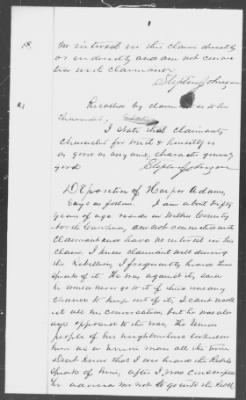 18.
no interest in this claim directly
or indirectly and am not connec
ted with claimant.
Stephen Johnson
Recalled by claimant as to his
character,
I state that claimants
character for truth & honesty is
as good as any ones, character generally
good Stephen Johnson
Deposition of Harper Adams,
Says as follows. I am about fifty
years of age reside in Wilkes County
North Carolina, am not connected with
Claimant and have no interest in this
claim, I knew claimant well during
the Rebellion, I frequently heard him
speak of it. He was against it, said
he would never go to it if there was any
chance to keep out of it, I cant recall
it all the conversation but he was al
ways opposed to the war. The Union
people of his neighbourhood looked on
him as a Union man all the time
Dont know that I ever heard the Rebels
speak of him, after I was conscripted
he advised me not to go into the Rebel